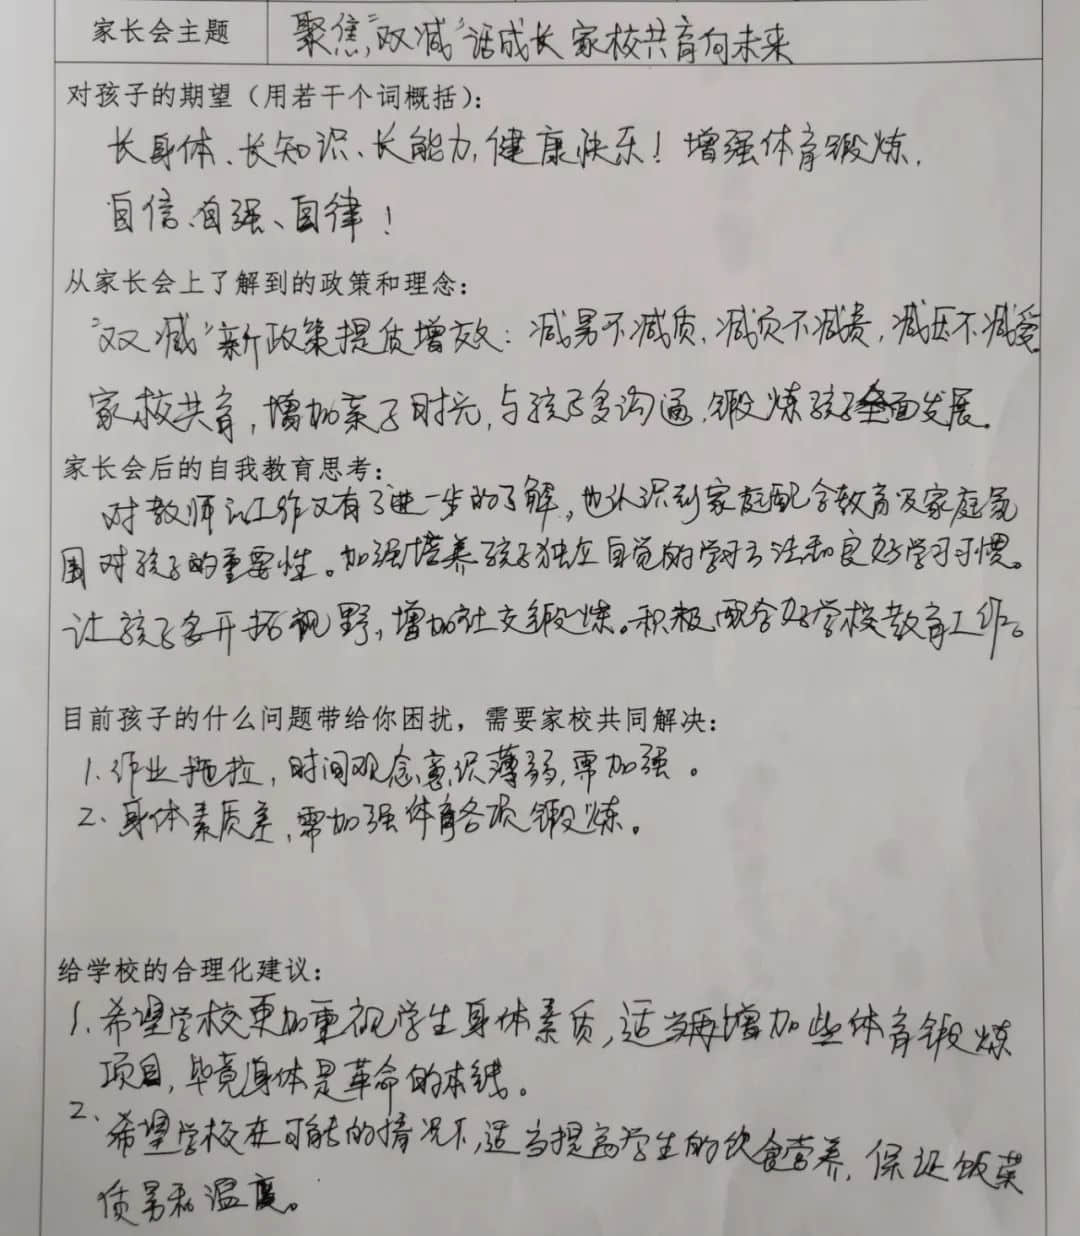 家长会主题 聚焦“双减”话成长 家校共育向未来
对孩子的期望（用若干个词概括）：
长身体、长知识、长能力,健康快乐！增强体育锻炼,
自信、自强、自律！
从家长会上了解到的政策和理念：
“双减”新政策提质增效：减量不减质,减负不减责,减压不减爱
家校共育,增加亲子时光,与孩子多沟通,锻炼孩子全面发展。
家长会后的自我教育思考：
对教师工作又有了进一步的了解,也认识到家庭配合教育及家庭氛
围对孩子的重要性。加强培养孩子独立自觉的学习方法和良好学习习惯。
让孩子多开拓视野,增加社交锻炼。积极配合好学校教育工作。
目前孩子的什么问题带给你困扰，需要家校共同解决：
1.作业拖拉,时间观念意识薄弱,需加强。
2、身体素质差,需加强体育各项锻炼。
给学校的合理化建议：
1.希望学校更加重视学生身体素质,适当再增加些体育锻炼
项目,毕竟身体是革命的本钱。
2、希望学校在可能的情况下,适当提高学生的饮食营养,保证饭菜
质量和温度。